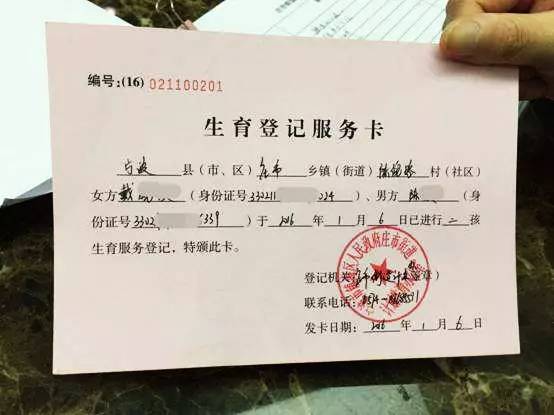 编号:(16) 021100201
生育登记服务卡
宁波 县(市、区) 庄市 乡镇(街道) 村(社区)
女方 戴 (身份证号 33211 224)、男方 陈 (身
份证号 3302 339)于 2016 年 1 月 6 日已进行 二 孩
生育服务登记,特颁此卡。
登记机关 章)
联系电话: 0574-
发卡日期: 2016 年 1 月 6 日
区人民政府庄市街道